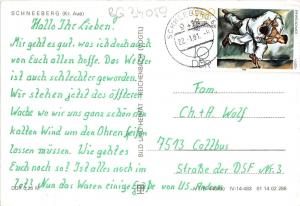 SCHNEEBERG (Kr. Aue)
Hallo Ihr Lieben!
Mir geht es gut, was ich doch auch
von Euch allen hoffe. Das Wetter
ist auch schlechter geworden.
Wir stehen jetzt des öfteren
Wache wo wir uns ganz schön den
kalten Wind um den Ohren
lassen müssen. Wie geht es
Euch noch so? Ist alles noch im
Lot? Nun das Waren einige Grüße von uns
BILD UND HEIMAT REICHENBACH (VOGTL)
DDR
Fam.
Ch. + A. Wolf
7513 Cottbus
Straße der DSF Nr. 3
IV-14-483 01 14 02 266